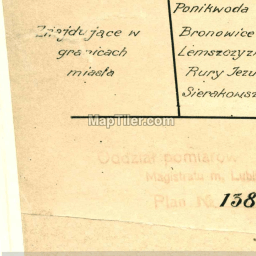 Znajdujące w
granicach
miasta
Ponikwoda
Bronowice
Lemszczyzn
Rury Jezu
Sierakowsz
MapTiler.com
Oddział pomiarów
Magistratu m. Lubl
Plan N.
138